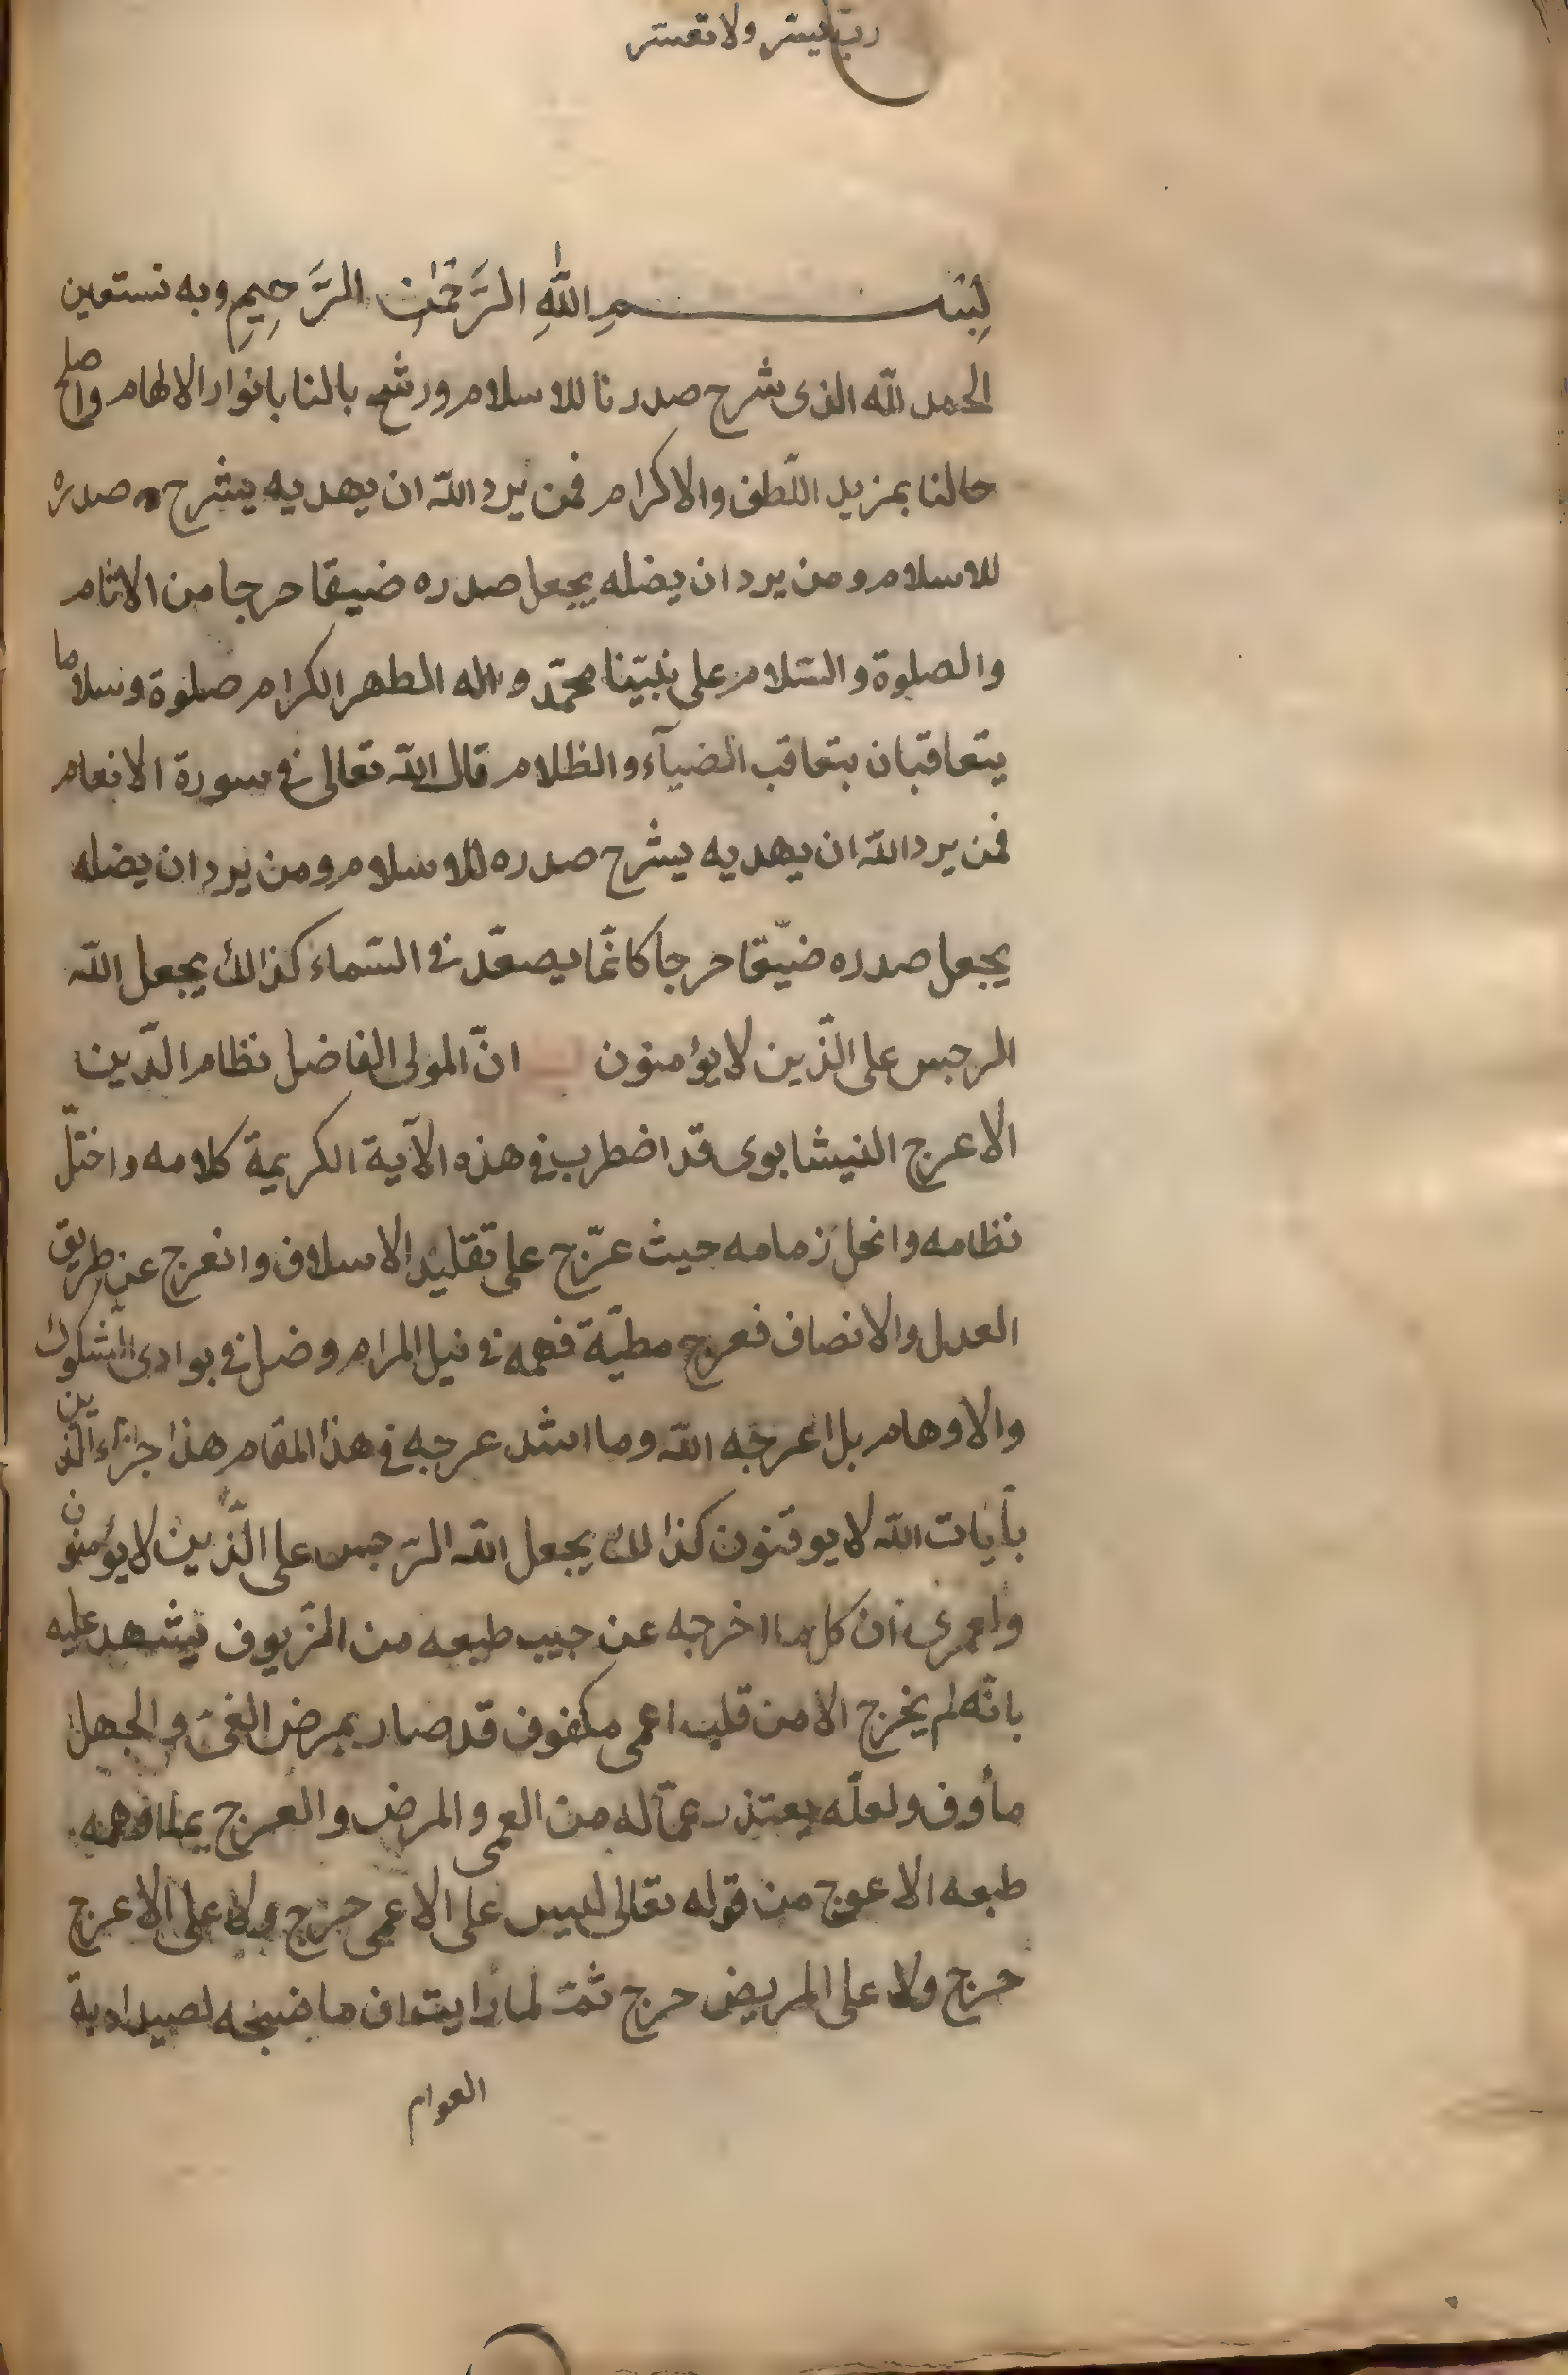 رب يسر ولا تعسر
بسم اللهِ الرَّحمٰن الرَّحِيمِ وبه نستعين
الحمد لله الذى شرح صدرنا للاسلام ورشح بالنا بانوار الالهام واصلح
حالنا بمزيد اللّطف والاكرام فمن يرد الله ان يهديه يشرح صدره
للاسلام ومن يرد ان يضله يجعل صدره ضيقا حرجا من الاثام
والصلوة والسّلام على نبيّنا محمّد واله الطهر الكرام صلوة وسلاما
يتعاقبان بتعاقب الضيآء والظلام قال الله تعالى فى سورة الانعام
فمن يرد الله ان يهديه يشرح صدره للاسلام ومن يرد ان يضله
يجعل صدره ضيّقا حرجا كانّما يصعّد فى السّماء كذالك يجعل الله
الرجس على الّذين لا يؤمنون انّ المولى الفاضل نظام الدّين
الاعرج النيشابوى قد اضطرب فى هذه الآية الكريمة كلامه واختلّ
نظامه وانحل زمامه حيث عرّج على تقليد الاسلاف وانعرج عن طريق
العدل والانصاف فعرج مطيّة فهمه فى نيل المرام وضل فى بوادى الشكوك
والاوهام بل اعرجه الله وما اشد عرجه فى هذا المقام هذا جزاء الّذين
بآيات الله لا يوقنون كذالك يجعل الله الرّجس على الّذين لا يؤمنون
ولعمرى ان كل ما اخرجه عن جيب طبعه من الزّيوف يشهد عليه
بانّه لم يخرج الا من قلب اعمى مكفوف قد صار بمرض الغىّ والجهل
مأوف ولعلّه يعتذر عمّا له من العمى والمرض والعرج بما افهمه
طبعه الاعوج من قوله تعالى ليس على الاعمى حرج ولا على الاعرج
حرج ولا على المريض حرج ثمّ لما رايت ان ما لصيد
العوام